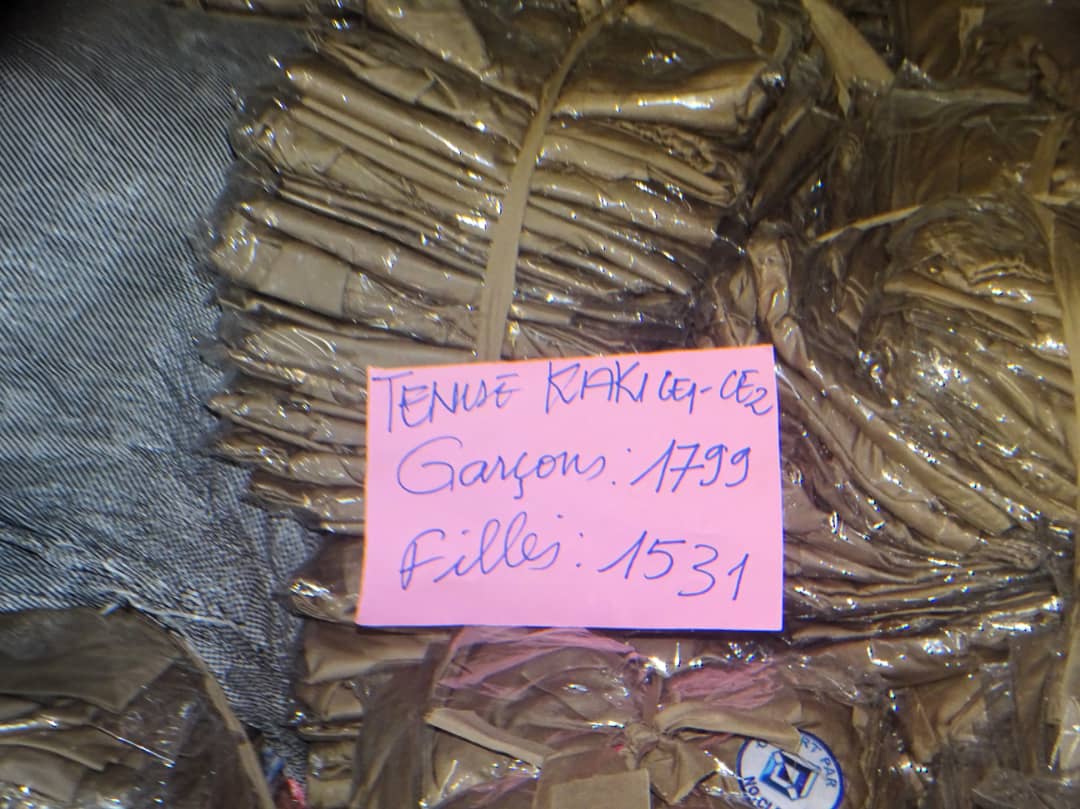 TENUE KAKI CE1-CE2
Garçons: 1799
Filles: 1531
RT PAR